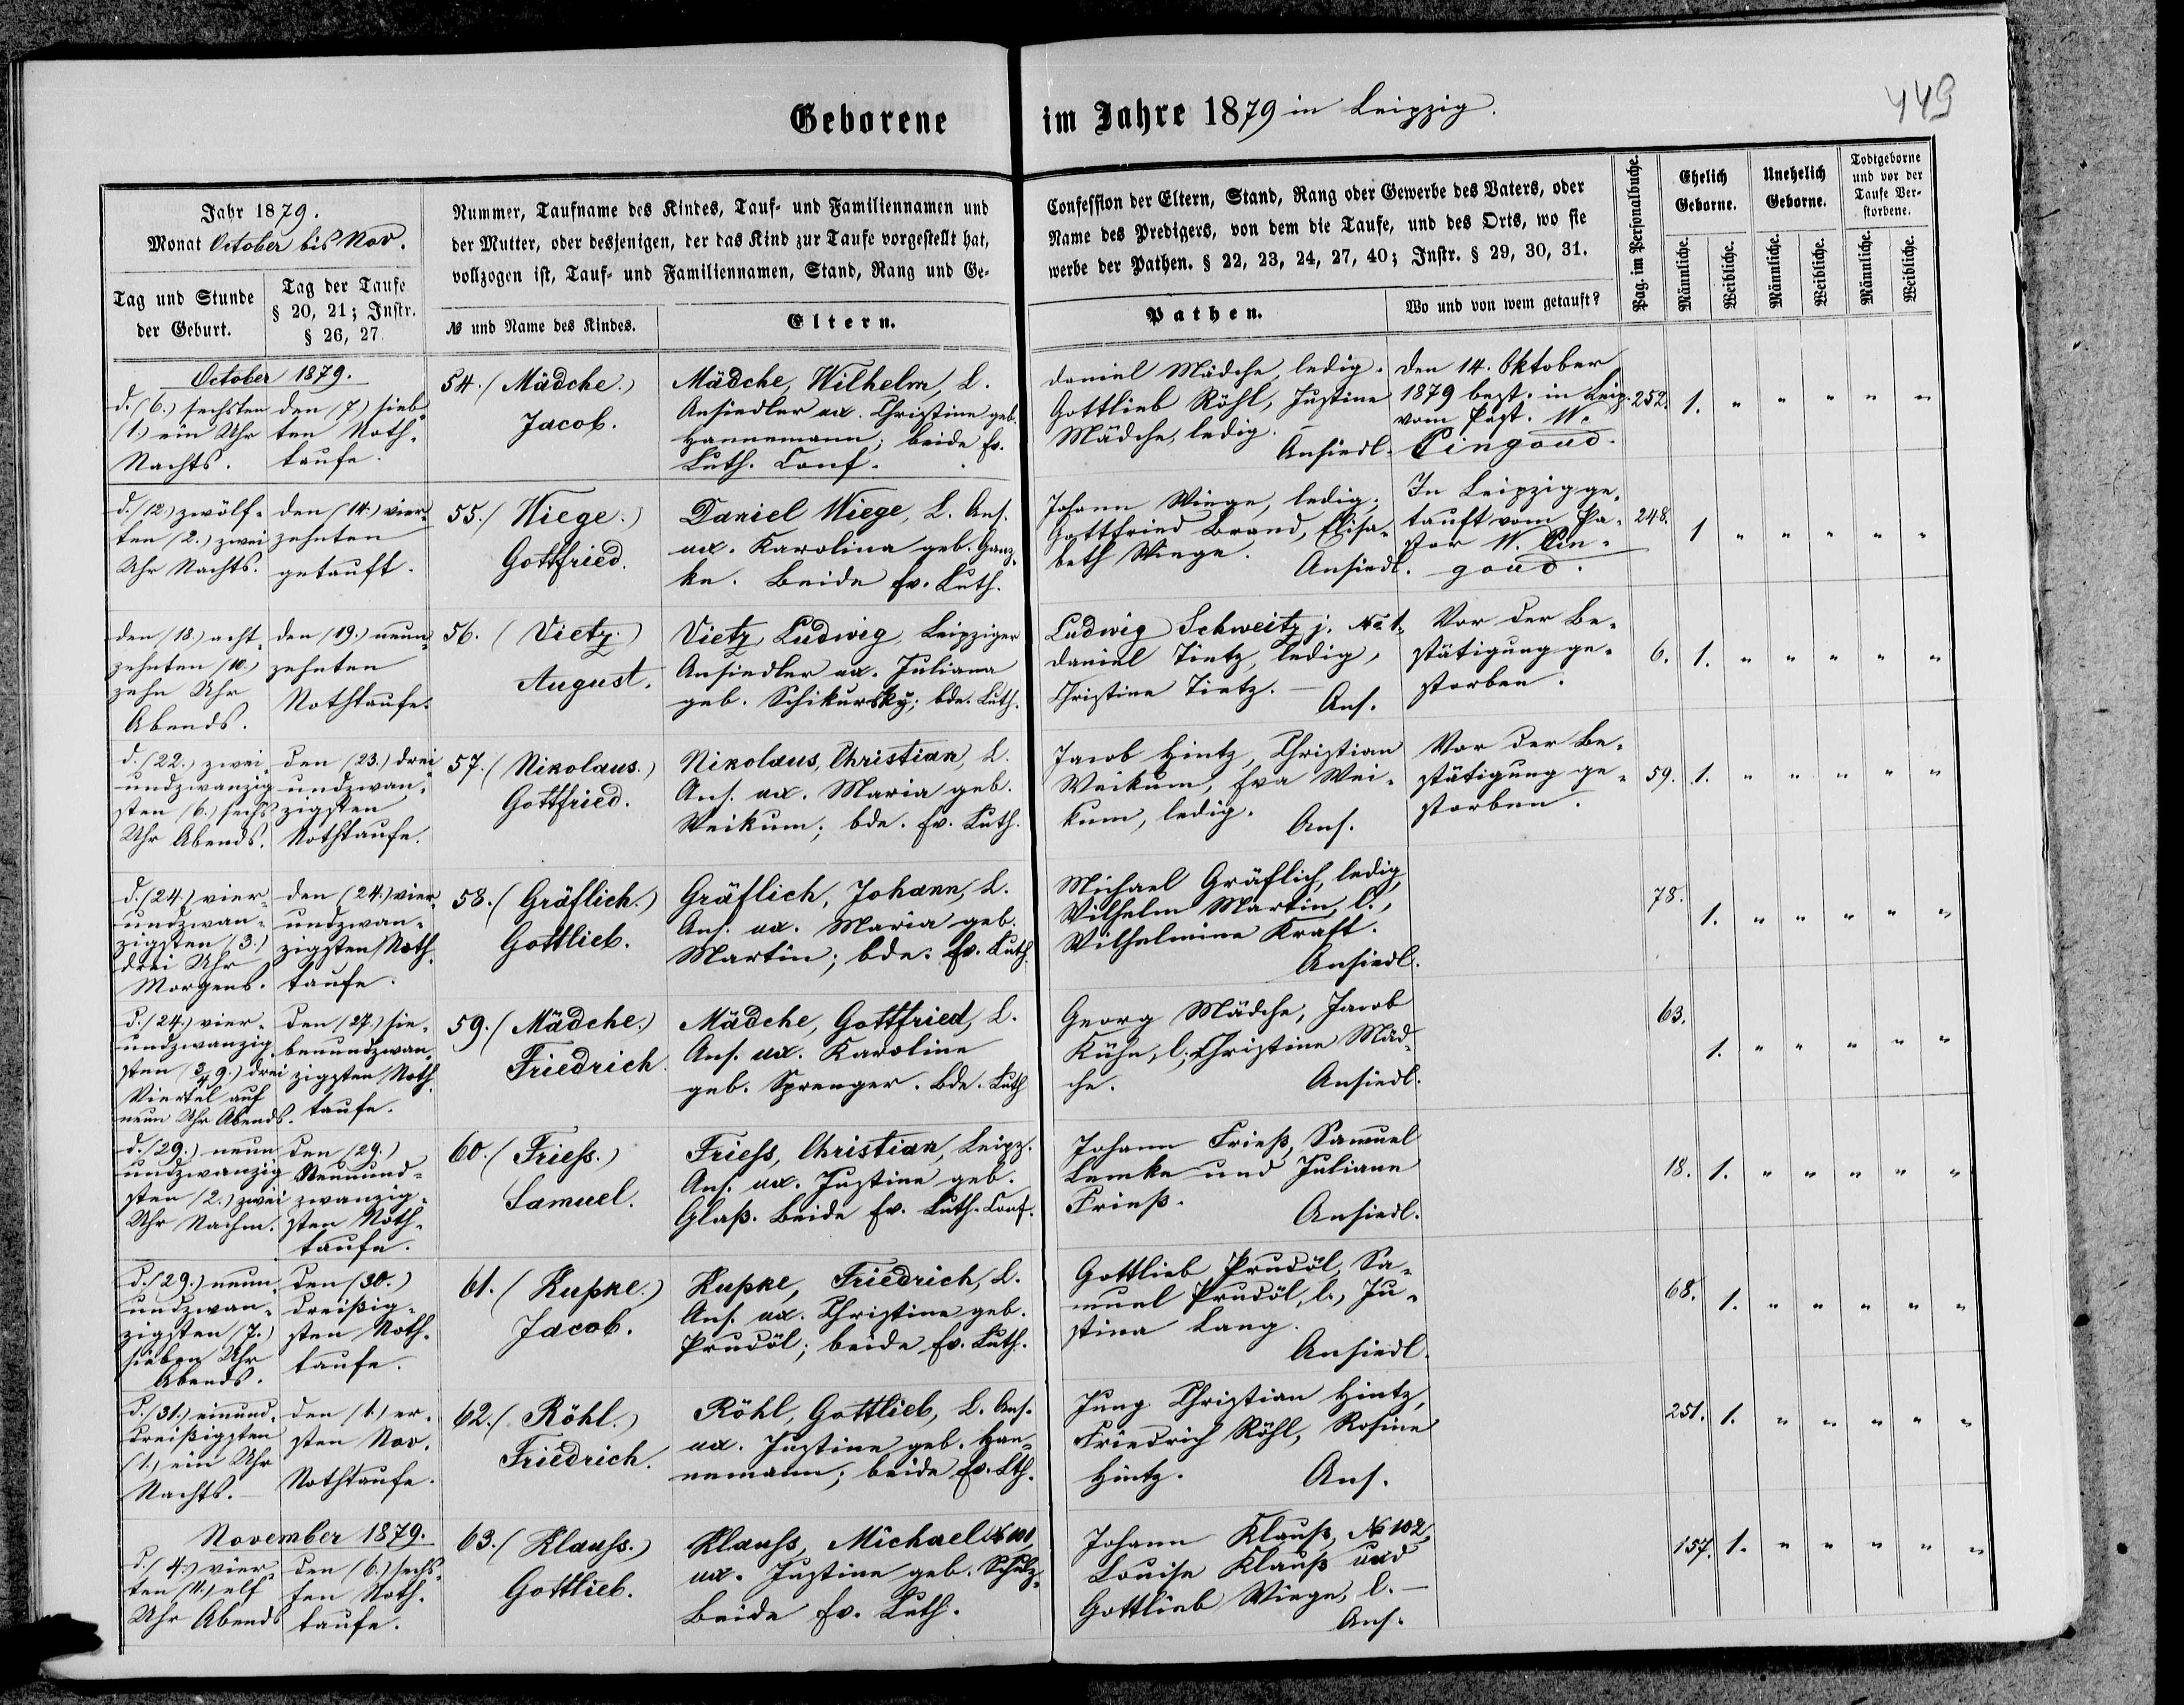 449
Geborene im Jahre 1879 in Leipzig.
Jahr 1879.
Monat October bis Nov.
Tag und Stunde
der Geburt.
Tag der Taufe
§ 20, 21; Instr.
§ 26, 27.
Nummer, Taufname des Kindes, Tauf- und Familiennamen und
der Mutter, oder desjenigen, der das Kind zur Taufe vorgestellt hat,
vollzogen ist, Tauf- und Familiennamen, Stand, Rang und Ge-
№ und Name des Kindes.
Eltern.
Confession der Eltern, Stand, Rang oder Gewerbe des Vaters, oder
Name des Predigers, von dem die Taufe, und des Orts, wo sie
werbe der Pathen. § 22, 23, 24, 27, 40; Instr. § 29, 30, 31.
Pathen.
Wo und von wem getauft?
Pag. im Personalbuche.
Ehelich
Geborne.
Unehelich
Geborne.
Todtgeborne
und vor der
Taufe Ver-
storbene.
Männliche.
Weibliche.
Männliche.
Weibliche.
Männliche.
Weibliche.
October 1879.
d. (6.) sechsten
(1.) ein Uhr
Nachts.
den (7.) sieb-
ten Noth-
taufe.
54. (Mädche.)
Jacob.
Mädche, Wilhelm, L.
Ansiedler ux. Christine geb.
Hannemann; beide Ev.
Luth. Conf.
Daniel Mädche, ledig.
Gottlieb Röhl, Justine
Mädche, ledig. –
Ansiedl.
Den 14. Oktober
1879 best. in Leip.
vom Past. W.
Pingoud.
252. 1. " " " " "
d. (12.) zwölf-
ten (2.) zwei
Uhr Nachts.
den (14.) vier-
zehnten
getauft.
55. (Wiege.)
Gottfried.
Daniel Wiege, L. Ans.
ux. Karolina geb. Ganz-
ke. Beide Ev. Luth.
Johann Wiege, ledig;
Gottfried Brand, Elisa-
beth Wiege.
Ansiedl.
In Leipzig ge-
tauft vom Pa-
stor W. Pin-
goud.
248. 1 " " " " "
den (18.) acht-
zehnten (10.)
zehn Uhr
Abends.
den (19.) neun-
zehnten
Nothtaufe.
56. (Vietz.)
August.
Vietz, Ludwig, Leipziger
Ansiedler ux. Juliana
geb. Schikursky; bde. Luth.
Ludwig Schweitz j. No 1.,
Daniel Tietz, ledig,
Christine Tietz. –
Ans.
Vor der Be-
stätigung ge-
storben.
6. 1. " " " " "
d. (22.) zwei-
undzwanzig-
sten (6.) sechs
Uhr Abends.
den (23.) drei-
undzwan-
zigsten
Nothtaufe.
57. (Nikolaus.)
Gottfried.
Nikolaus, Christian, L.
Ans. ux. Maria geb.
Weikum; bde. Ev. Luth.
Jacob Hintz, Christian
Weikum, Eva Wei-
kum, ledig.
Ans.
Vor der Be-
stätigung ge-
storben.
59. 1. " " " " "
d. (24.) vier-
undzwan-
zigsten (3.)
drei Uhr
Morgens.
den (24.) vier-
undzwan-
zigsten Noth-
taufe.
58. (Gräflich.)
Gottlieb.
Gräflich, Johann, L.
Ans. ux. Maria geb.
Martin; bde. Ev. Luth.
Michael Gräflich, ledig,
Wilhelm Martin, l.,
Wilhelmine Kraft.
Ansiedl.
78. 1. " " " " "
d. (24.) vier-
undzwanzig-
sten (3/4 9.) drei
Viertel auf
neun Uhr Abends.
den (27.) sie-
benundzwan-
zigsten Noth-
taufe.
59. (Mädche.)
Friedrich.
Mädche, Gottfried, L.
Ans. ux. Karoline
geb. Sprenger. Bde. Luth
Georg Mädche, Jacob
Kühn, l.; Christine Mäd-
che. Ansiedl.
63. 1. " " " " "
d. (29.) neun-
undzwanzig-
sten (2.) zwei
Uhr Nachm.
den (29.)
Neunund-
zwanzig-
sten Noth-
taufe.
60. (Friess.)
Samuel.
Friess, Christian, Leipz.
Ans. ux. Justine geb.
Glaß. Beide Ev. Luth. Conf.
Johann Frieß, Samuel
Lemke und Juliane
Frieß.
Ansiedl.
18. 1. " " " " "
d. (29.) neun-
undzwan-
zigsten (7.)
sieben Uhr
Abends.
den (30.)
dreißig-
sten Noth-
taufe.
61. (Kupke.)
Jacob.
Kupke, Friedrich, L.
Ans. ux. Christine geb.
Prudöl; beide Ev. Luth.
Gottlieb Prudöl, Sa-
muel Prudöl, l., Ju-
stina Lang.
Ansiedl.
68. 1. " " " " "
d. (31.) einund-
dreißigsten
(1.) ein Uhr
Nachts. –
den (1.) er-
sten Nov.
Nothtaufe.
62. (Röhl.)
Friedrich.
Röhl, Gottlieb, L. Ans.
ux. Justine geb. Han-
nemann; beide Ev. Lth.
Jung Christian Hintz,
Friedrich Röhl, Rosine
Hintz.
Ans.
251. 1. " " " " "
November 1879.
d. (4.) vier-
ten (11.) elf
Uhr Abends
den (6.) sechs-
ten Noth-
taufe.
63. (Klauss.)
Gottlieb.
Klauss, Michael № 101,
ux. Justine geb. Schulz.
Beide Ev. Luth.
Johann Klauß, № 102,
Louise Klauß und
Gottlieb Wiege, l. –
Ans.
157. 1. " " " " "